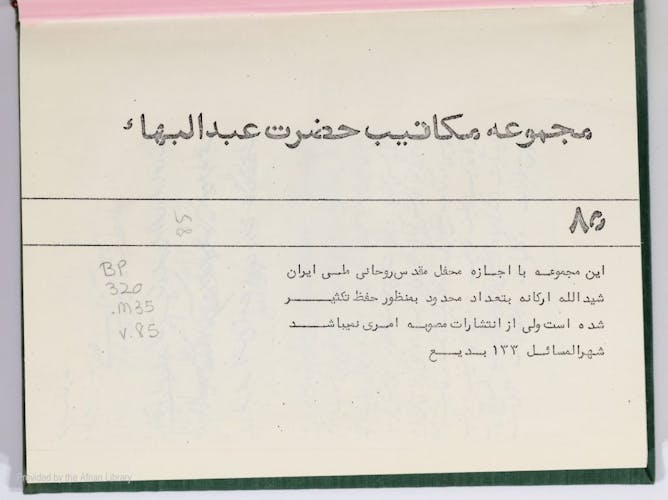 مجموعه مکاتیب حضرت عبدالبهاء
۸۵
85
این مجموعه با اجازه محفل مقدس روحانی ملی ایران
شیدالله ارکانه بتعداد محدود بمنظور حفظ تکثیر
شده است ولی از انتشارات مصوبه امری نمیباشد
شهرالمسائل ۱۳۳ بدیع
BP
320
.M35
v.85
Provided by the Afnan Library